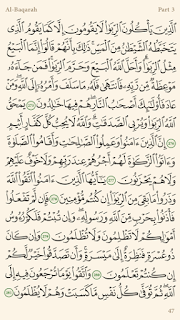 Al-Baqarah Part 3
ٱلَّذِينَ يَأْكُلُونَ ٱلرِّبَوٰا۟ لَا يَقُومُونَ إِلَّا كَمَا يَقُومُ ٱلَّذِى
يَتَخَبَّطُهُ ٱلشَّيْطَٰنُ مِنَ ٱلْمَسِّ ۚ ذَٰلِكَ بِأَنَّهُمْ قَالُوٓا۟ إِنَّمَا ٱلْبَيْعُ
مِثْلُ ٱلرِّبَوٰا۟ ۗ وَأَحَلَّ ٱللَّهُ ٱلْبَيْعَ وَحَرَّمَ ٱلرِّبَوٰا۟ ۚ فَمَن جَآءَهُۥ
مَوْعِظَةٌ مِّن رَّبِّهِۦ فَٱنتَهَىٰ فَلَهُۥ مَا سَلَفَ وَأَمْرُهُۥٓ إِلَى ٱللَّهِ ۖ وَمَنْ
عَادَ فَأُو۟لَٰٓئِكَ أَصْحَٰبُ ٱلنَّارِ ۖ هُمْ فِيهَا خَٰلِدُونَ ٢٧٥ يَمْحَقُ
ٱللَّهُ ٱلرِّبَوٰا۟ وَيُرْبِى ٱلصَّدَقَٰتِ ۗ وَٱللَّهُ لَا يُحِبُّ كُلَّ كَفَّارٍ أَثِيمٍ
٢٧٦ إِنَّ ٱلَّذِينَ ءَامَنُوا۟ وَعَمِلُوا۟ ٱلصَّٰلِحَٰتِ وَأَقَامُوا۟ ٱلصَّلَوٰةَ
وَءَاتَوُا۟ ٱلزَّكَوٰةَ لَهُمْ أَجْرُهُمْ عِندَ رَبِّهِمْ وَلَا خَوْفٌ عَلَيْهِمْ
وَلَا هُمْ يَحْزَنُونَ ٢٧٧ يَٰٓأَيُّهَا ٱلَّذِينَ ءَامَنُوا۟ ٱتَّقُوا۟ ٱللَّهَ
وَذَرُوا۟ مَا بَقِىَ مِنَ ٱلرِّبَوٰٓا۟ إِن كُنتُم مُّؤْمِنِينَ ٢٧٨ فَإِن لَّمْ تَفْعَلُوا۟
فَأْذَنُوا۟ بِحَرْبٍ مِّنَ ٱللَّهِ وَرَسُولِهِۦ ۖ وَإِن تُبْتُمْ فَلَكُمْ رُءُوسُ
أَمْوَٰلِكُمْ لَا تَظْلِمُونَ وَلَا تُظْلَمُونَ ٢٧٩ وَإِن كَانَ
ذُو عُسْرَةٍ فَنَظِرَةٌ إِلَىٰ مَيْسَرَةٍ ۚ وَأَن تَصَدَّقُوا۟ خَيْرٌ لَّكُمْ ۖ
إِن كُنتُمْ تَعْلَمُونَ ٢٨٠ وَٱتَّقُوا۟ يَوْمًا تُرْجَعُونَ فِيهِ إِلَى
ٱللَّهِ ۖ ثُمَّ تُوَفَّىٰ كُلُّ نَفْسٍ مَّا كَسَبَتْ وَهُمْ لَا يُظْلَمُونَ ٢٨١
47